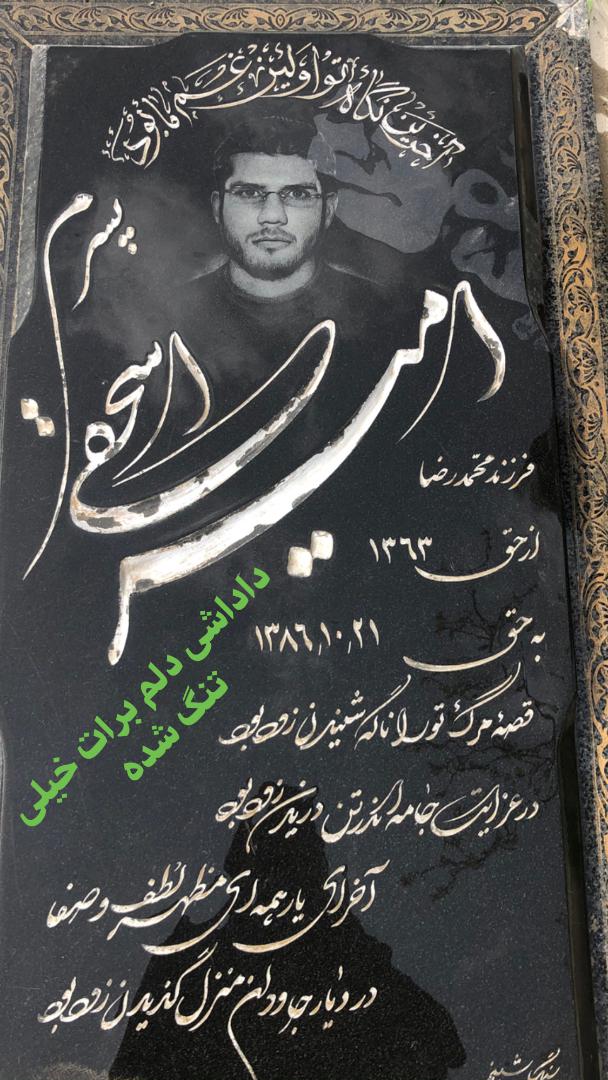 آخرین نگاه تو اولین غم ما بود
پسرم
امیر اسحقی
فرزند محمدرضا
از حق ۱۳۶۳
به حق ۱۳۸۶٫۱۰٫۲۱
داداشی دلم برات خیلی
تنگ شده
قصهٔ مرگ تو را ناگه شنیدن زود بود
در عزایت جامه از تن دریدن زود بود
آخر ای یار همه ای مظهر لطف و صفا
در دیار جاودان منزل گزیدن زود بود
سنگ